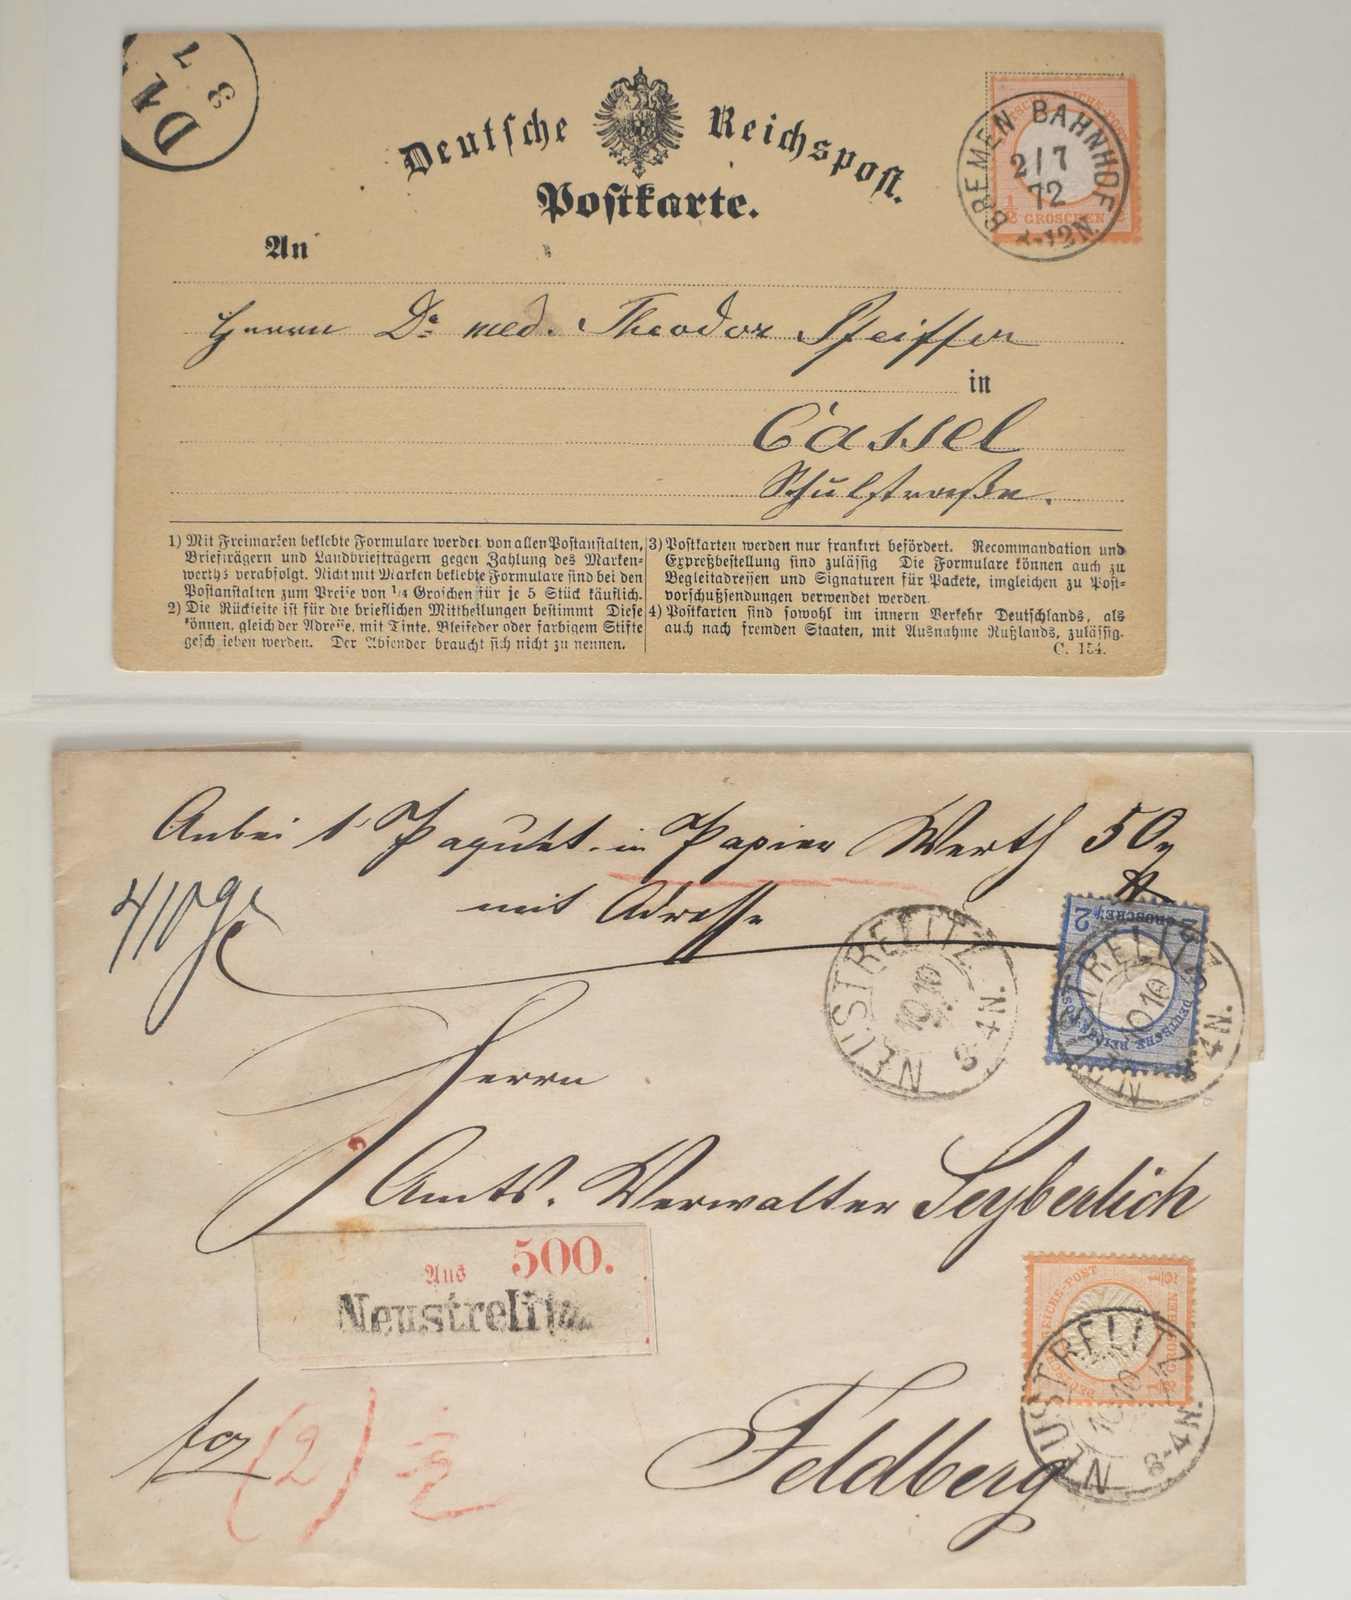 3 7
Deutsche Reichspost.
Postkarte.
BREMEN BAHNHOF
2/7
72
-12N.
½ GROSCHEN
An
Herrn Dr med. Theodor Pfeiffer
in
Cassel
Schulstraße.
1) Mit Freimarken beklebte Formulare werden von allen Postanstalten,
Briefträgern und Landbriefträgern gegen Zahlung des Marken-
werths verabfolgt. Nicht mit Marken beklebte Formulare sind bei den
Postanstalten zum Preise von ¼ Groschen für je 5 Stück käuflich.
2) Die Rückseite ist für die brieflichen Mittheilungen bestimmt Diese
können, gleich der Adresse, mit Tinte, Bleifeder oder farbigem Stifte
geschrieben werden. Der Absender braucht sich nicht zu nennen.
3) Postkarten werden nur frankirt befördert. Recommandation und
Expreßbestellung sind zulässig Die Formulare können auch zu
Begleitadressen und Signaturen für Packete, imgleichen zu Post-
vorschußsendungen verwendet werden.
4) Postkarten sind sowohl im innern Verkehr Deutschlands, als
auch nach fremden Staaten, mit Ausnahme Rußlands, zulässig.
C. 154.
Anbei 1 Paquet in Papier Werth 50
mit Adresse
NEUSTRELITZ
10 10
3-4N.
2 GROSCHEN 2
DEUTSCHE REICHS-POST
NEUSTRELITZ
10 10
3-4N.
Herrn
Amts-Verwalter Seyberlich
Aus 500.
Neustrelitz.
DEUTSCHE REICHS-POST
½ GROSCHEN ½
NEUSTRELITZ
10 10
3-4N.
(2)
Feldberg